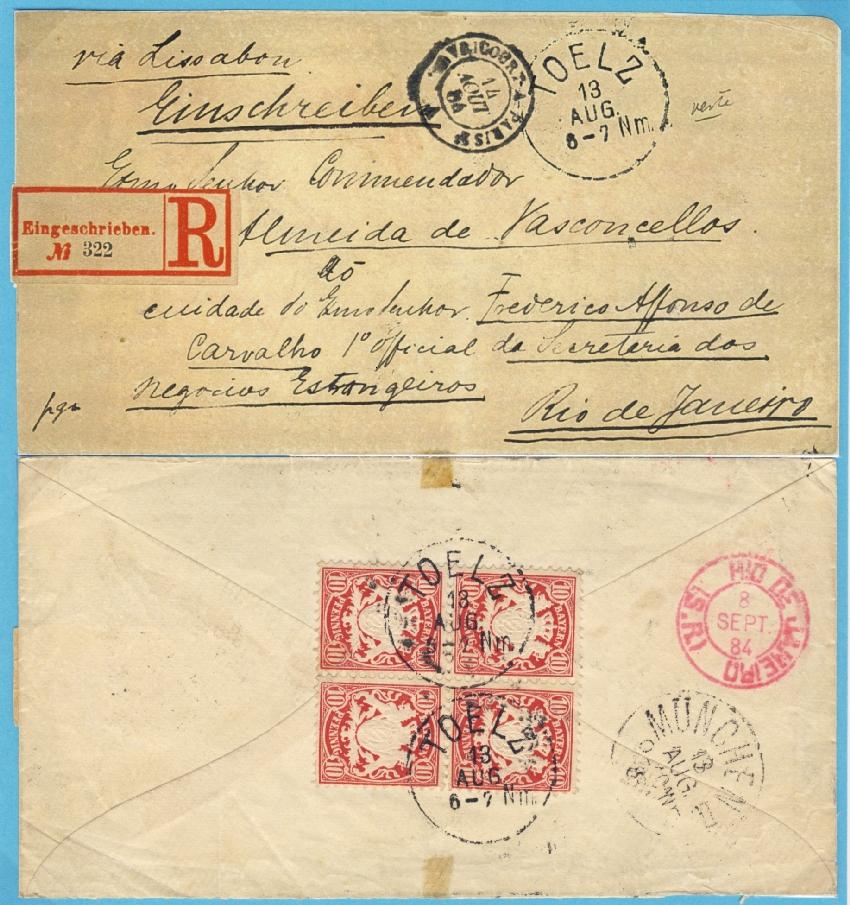 via Lissabon
Einschreiben
AVRICOURT A PARIS
14
AOUT
84
TOELZ
13
AUG.
6-7 Nm.
verte
Exmo Senhor Commendador
Eingeschrieben.
№ 322
R
Almeida de Vasconcellos.
Ao
cuidado do Exmo Senhor Frederico Affonso de
Carvalho 1º Official da Secreteria dos
Negocios Estrangeiros
Rio de Janeiro
TOELZ
13
AUG.
6-7 Nm.
BAYERN
10
PFENNIG
BAYERN
10
BAYERN
10
PFENNIG
BAYERN
10
TOELZ
13
AUG.
6-7 Nm.
RIO DE JANEIRO (S.R)
8
SEPT.
84
MÜNCHEN
13
AUG.